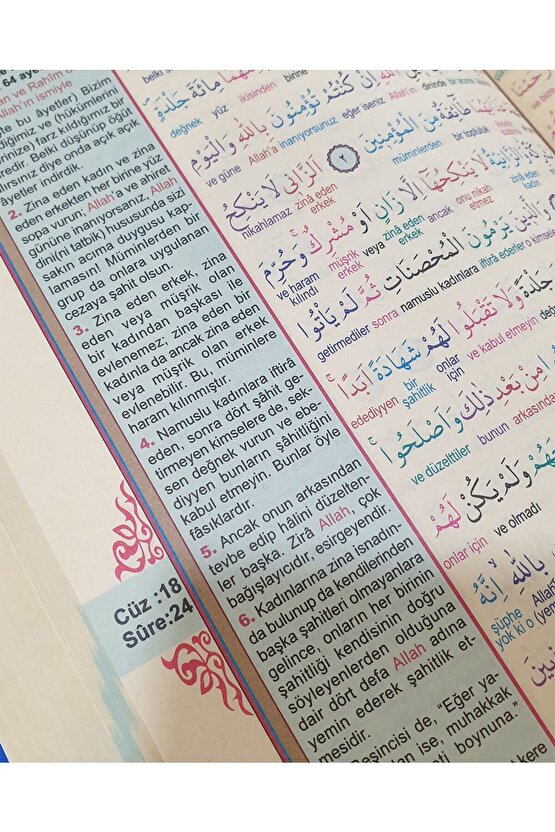 64 âye
an ve Rahîm o
Allah'ın ismiyle
te bu âyetler) Bizim
diğimiz ve (hükümlerini
rinize) farz kıldığımız bir
redir. Belki düşünüp öğüt
lırsınız diye onda açık açık
âyetler indirdik.
2. Zina eden kadın ve zina
eden erkekten her birine yüz
sopa vurun; Allah'a ve ahiret
gününe inanıyorsanız, Allah
dini(ni tatbik) hususunda sizi
sakın acıma duygusu kap-
lamasın! Müminlerden bir
grup da onlara uygulanan
cezaya şahit olsun.
3. Zina eden erkek, zina
eden veya müşrik olan
bir kadından başkası ile
evlenemez; zina eden bir
kadınla da ancak zina eden
veya müşrik olan erkek
evlenebilir. Bu, müminlere
haram kılınmıştır.
4. Namuslu kadınlara iftirâ
eden, sonra dört şâhit ge-
tirmeyen kimselere de, sek-
sen değnek vurun ve ebe-
diyyen bunların şâhitliğini
kabul etmeyin. Bunlar öyle
fâsıklardır.
5. Ancak onun arkasından
tevbe edip hâlini düzelten-
ler başka. Zirâ Allah, çok
bağışlayıcıdır, esirgeyendir.
6. Kadınlarına zina isnadın-
da bulunup da kendilerinden
başka şahitleri olmayanlara
gelince, onların her birinin
şahitliği kendisinin doğru
söyleyenlerden olduğuna
dair dört defa Allah adına
yemin ederek şahitlik et-
mesidir.
Beşincisi de, "Eğer ya-
lan ise, muhakkak
eti boynuna."
Cüz :18
Sûre:24
مِائَةَ جَلْدَةٍ
değnek yüz ikisinden birine
اِنْ كُنْتُمْ تُؤْمِنُونَ بِاللّٰهِ وَالْيَوْمِ
ve güne Allah'a inanıyorsunuz eğer iseniz Allah'ın
طَٓائِفَةٌ مِنَ الْمُؤْمِنٖينَ ٢ اَلزَّانٖي لَا يَنْكِحُ
nikahlamaz zinâ eden erkek müminlerden bir topluluk
لَا يَنْكِحُهَٓا اِلَّا زَانٍ اَوْ مُشْرِكٌ وَحُرِّمَ
ve haram kılındı müşrik erkek veya zinâ eden erkek ancak onu nikah etmez zinâ eden kadın
يَرْمُونَ الْمُحْصَنَاتِ ثُمَّ لَمْ يَأْتُوا
getirmediler sonra namuslu kadınlara iftirâ ederler
جَلْدَةً وَلَا تَقْبَلُوا لَهُمْ شَهَادَةً اَبَدًا
ebediyyen bir şahitlik onlar için ve kabul etmeyin
مِنْ بَعْدِ ذٰلِكَ وَاَصْلَحُوا
ve düzelttiler bunun arkasından
وَلَمْ يَكُنْ لَهُمْ
onlar için ve olmadı
بِاللّٰهِ اِنَّهُ
şüphe yok ki o